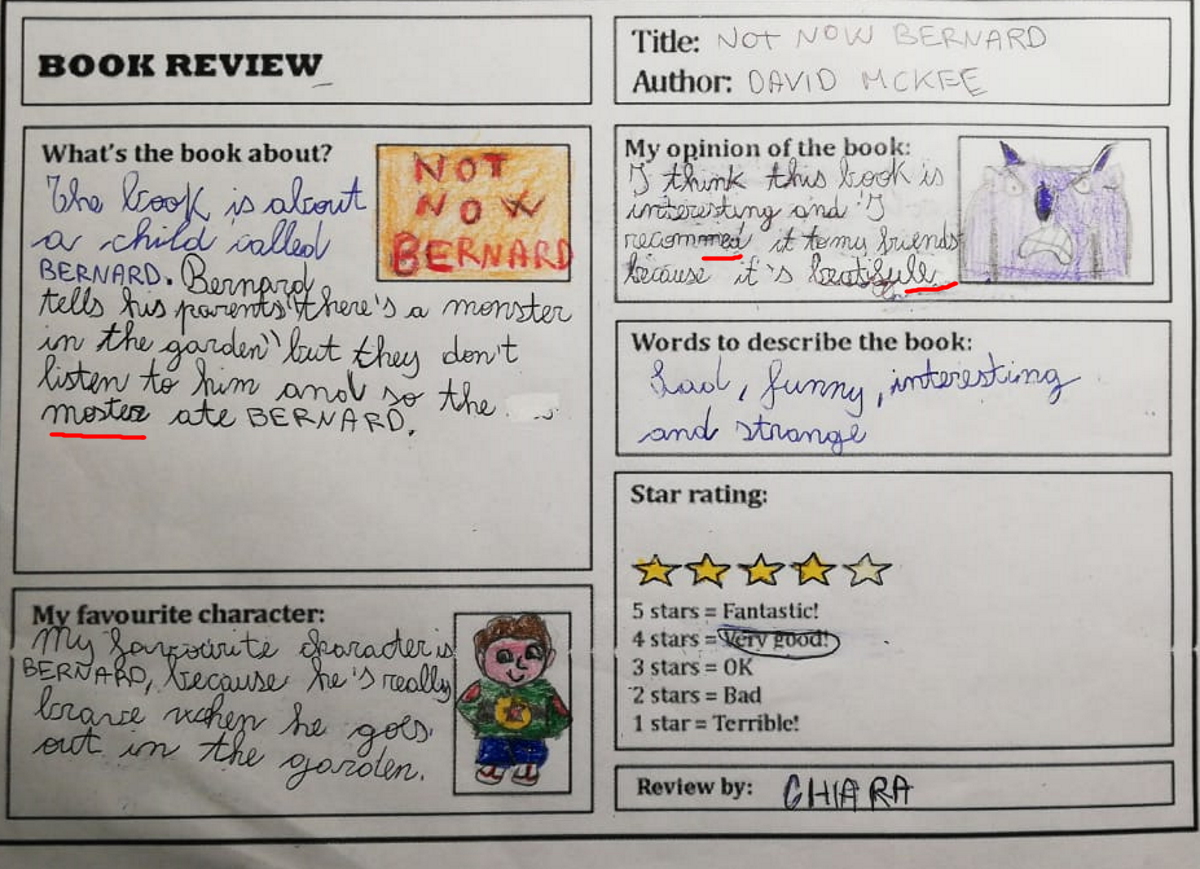 BOOK REVIEW
Title: NOT NOW BERNARD
Author: DAVID MCKEE
What's the book about?
NOT
NOW
BERNARD
The book is about
a child called
BERNARD. Bernard
tells his parents "there's a monster
in the garden" but they don't
listen to him and so the
moster ate BERNARD.
My favourite character:
My favourite character is
BERNARD, because he's really
brave when he goes
out in the garden.
My opinion of the book:
I think this book is
interesting and I
recommed it to my friends
because it's beatifule
Words to describe the book:
Sad, funny, interesting
and strange
Star rating:
5 stars = Fantastic!
4 stars = Very good!
3 stars = OK
2 stars = Bad
1 star = Terrible!
Review by: CHIARA